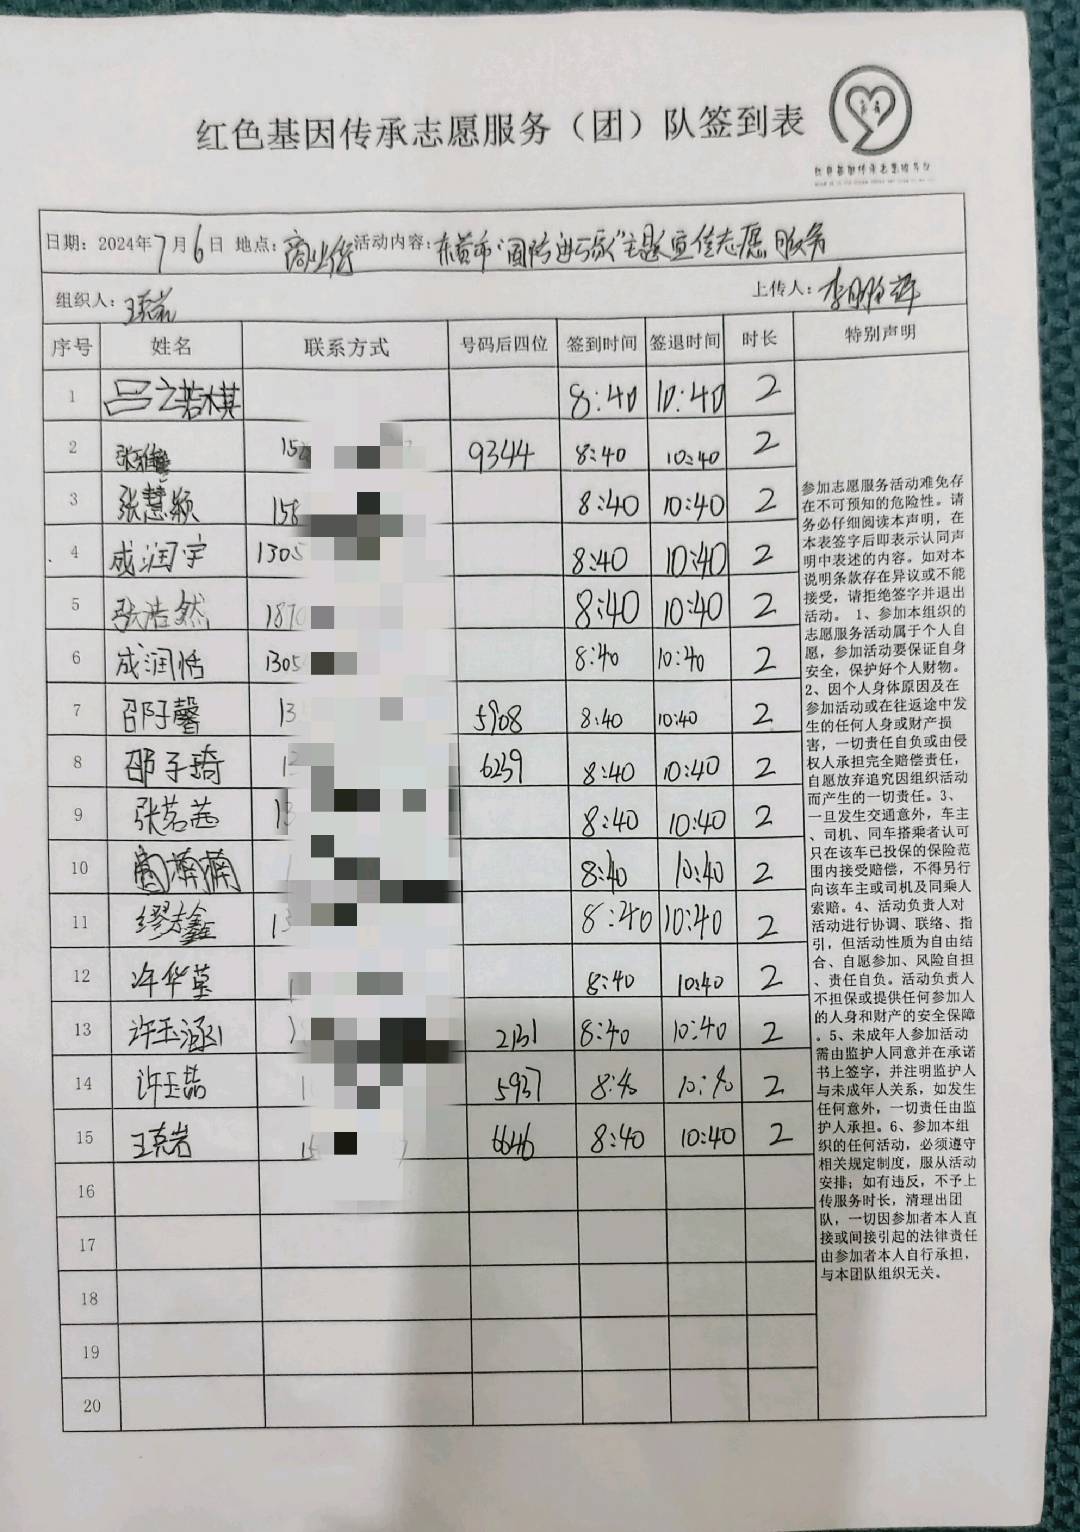 红色基因传承志愿服务（团）队签到表
红色基因传承志愿服务队
日期：2024年7月6日 地点：商业街 活动内容：东营市“国防进万家”主题宣传志愿服务
组织人：王克岩 上传人：李
序号 姓名 联系方式 号码后四位 签到时间 签退时间 时长 特别声明
1 吕之若棋 8:40 10:40 2
2 张雅 152 9344 8:40 10:40 2
3 张慧颖 158 8:40 10:40 2
4 成润宇 1305 8:40 10:40 2
5 张浩然 1870 8:40 10:40 2
6 成润恬 1305 8:40 10:40 2
7 邵子馨 13 5908 8:40 10:40 2
8 邵子琦 13 6239 8:40 10:40 2
9 张茗茜 13 8:40 10:40 2
10 楠楠 8:40 10:40 2
11 缪志鑫 13 8:40 10:40 2
12 华莹 8:40 10:40 2
13 许玉涵 2131 8:40 10:40 2
14 许玉喆 5937 8:40 10:40 2
15 王克岩 15 6646 8:40 10:40 2
16
17
18
19
20
参加志愿服务活动难免存
在不可预知的危险性。请
务必仔细阅读本声明，在
本表签字后即表示认同声
明中表述的内容。如对本
说明条款存在异议或不能
接受，请拒绝签字并退出
活动。1、参加本组织的
志愿服务活动属于个人自
愿，参加活动要保证自身
安全，保护好个人财物。
2、因个人身体原因及在
参加活动或在往返途中发
生的任何人身或财产损
害，一切责任自负或由侵
权人承担完全赔偿责任，
自愿放弃追究因组织活动
而产生的一切责任。3、
一旦发生交通意外，车主
、司机、同车搭乘者认可
只在该车已投保的保险范
围内接受赔偿，不得另行
向该车主或司机及同乘人
索赔。4、活动负责人对
活动进行协调、联络、指
引，但活动性质为自由结
合、自愿参加、风险自担
、责任自负。活动负责人
不担保或提供任何参加人
的人身和财产的安全保障
。5、未成年人参加活动
需由监护人同意并在承诺
书上签字，并注明监护人
与未成年人关系，如发生
任何意外，一切责任由监
护人承担。6、参加本组
织的任何活动，必须遵守
相关规定制度，服从活动
安排；如有违反，不予上
传服务时长，清理出团
队，一切因参加者本人直
接或间接引起的法律责任
由参加者本人自行承担，
与本团队组织无关。